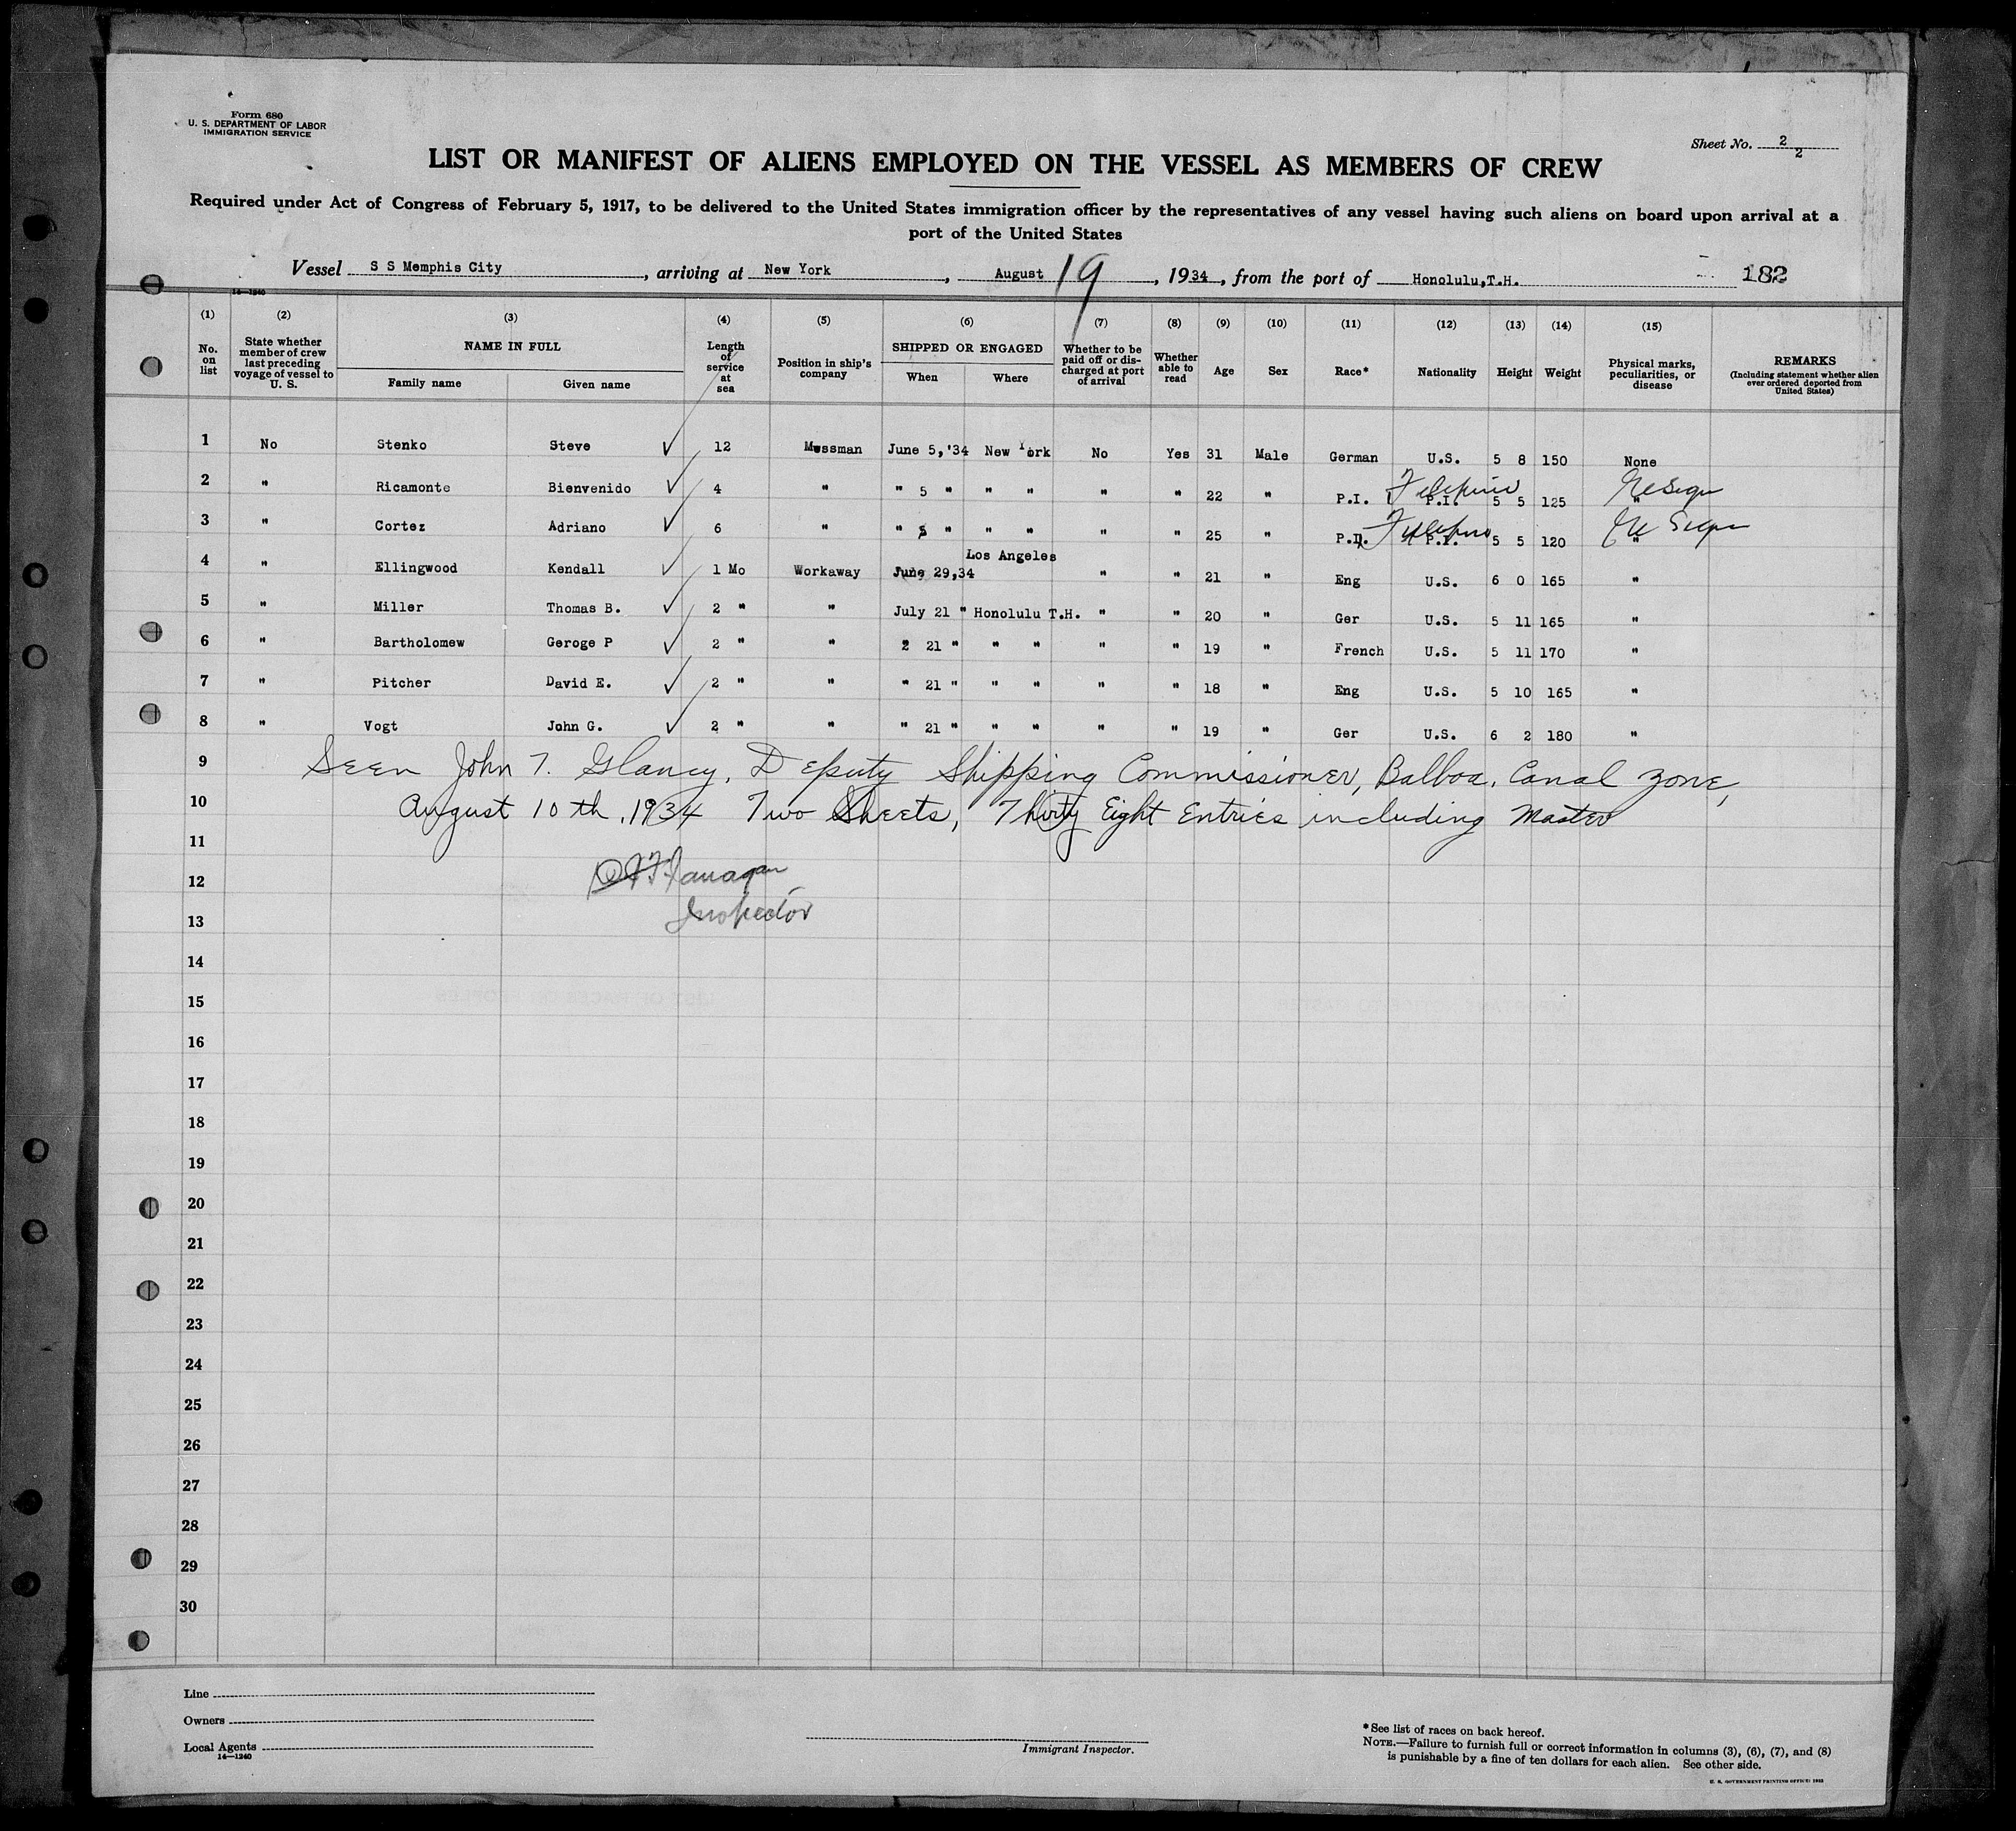 Form 680
U. S. DEPARTMENT OF LABOR
IMMIGRATION SERVICE
Sheet No. 2
2
LIST OR MANIFEST OF ALIENS EMPLOYED ON THE VESSEL AS MEMBERS OF CREW
Required under Act of Congress of February 5, 1917, to be delivered to the United States immigration officer by the representatives of any vessel having such aliens on board upon arrival at a
port of the United States
Vessel S S Memphis City, arriving at New York, August 19, 1934, from the port of Honolulu,T.H. 182
14—1240
(1) (2) (3) (4) (5) (6) (7) (8) (9) (10) (11) (12) (13) (14) (15)
No. on list State whether member of crew last preceding voyage of vessel to U. S. NAME IN FULL Family name Given name Length of service at sea Position in ship's company SHIPPED OR ENGAGED When Where Whether to be paid off or discharged at port of arrival Whether able to read Age Sex Race* Nationality Height Weight Physical marks, peculiarities, or disease REMARKS (Including statement whether alien ever ordered deported from United States)
1 No Stenko Steve ✓ 12 Messman June 5,'34 New York No Yes 31 Male German U.S. 5 8 150 None
2 " Ricamonte Bienvenido ✓ 4 " " 5 " " " " " 22 " P.I. P.I. 5 5 125 "
3 " Cortez Adriano ✓ 6 " " 5 " " " " " 25 " P.I. P.I. 5 5 120 "
4 " Ellingwood Kendall ✓ 1 Mo Workaway June 29,34 Los Angeles " " 21 " Eng U.S. 6 0 165 "
5 " Miller Thomas B. ✓ 2 " " July 21 " Honolulu T.H. " " 20 " Ger U.S. 5 11 165 "
6 " Bartholomew Geroge P ✓ 2 " " " 21 " " " " " 19 " French U.S. 5 11 170 "
7 " Pitcher David E. ✓ 2 " " " 21 " " " " " 18 " Eng U.S. 5 10 165 "
8 " Vogt John G. ✓ 2 " " " 21 " " " " " 19 " Ger U.S. 6 2 180 "
9 Seen John T. Glancy, Deputy Shipping Commissioner, Balboa, Canal Zone,
10 August 10th, 1934 Two Sheets, Thirty Eight Entries including Master
11
12 Flanagan
13 Inspector
14
15
16
17
18
19
20
21
22
23
24
25
26
27
28
29
30
Line
Owners
Local Agents
14—1240
Immigrant Inspector.
*See list of races on back hereof.
NOTE.—Failure to furnish full or correct information in columns (3), (6), (7), and (8)
is punishable by a fine of ten dollars for each alien. See other side.
U. S. GOVERNMENT PRINTING OFFICE: 1933